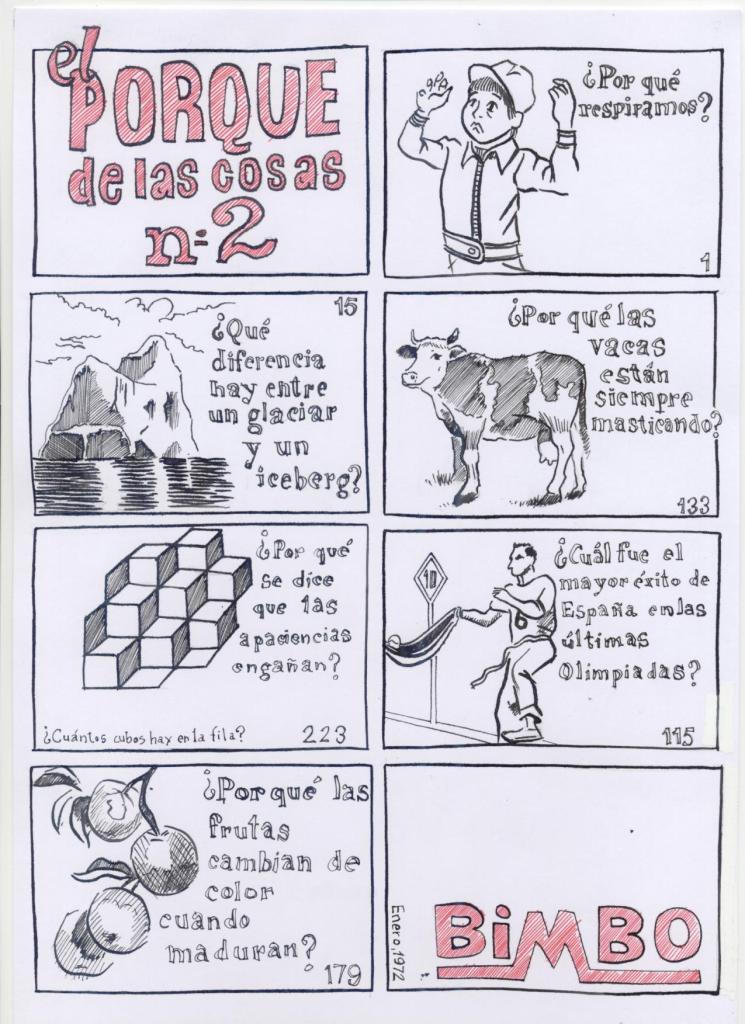 el
PORQUE
de las cosas
n=2
¿Por qué
respiramos?
1
15
¿Qué
diferencia
hay entre
un glaciar
y un
iceberg?
¿Por qué las
vacas
están
siempre
masticando?
133
¿Por qué
se dice
que las
apaciencias
engañan?
¿Cuántos cubos hay en la fila?
223
10
6
¿Cuál fue el
mayor éxito de
España en las
últimas
Olimpiadas?
115
¿Por qué las
frutas
cambian de
color
cuando
maduran?
179
Enero, 1972
BiMBO